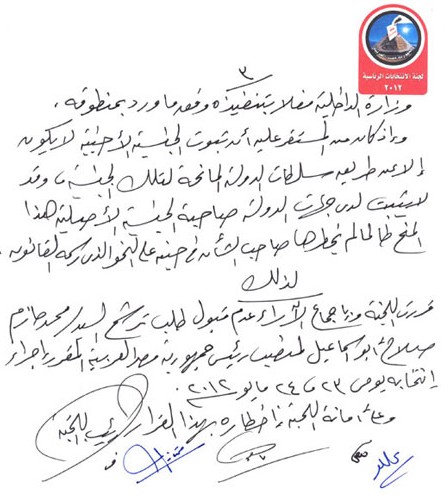 لجنة الانتخابات الرئاسية
٢٠١٢
٣
وزارة الداخلية مفلا بتنفيذه وفقه ما ورد بمنطوقه .
وإذ كان من المستقر عليه أن ثبوت الجنسية الأجنبية لا يكون
إلا عن طريق سلطات الدولة المانحة لتلك الجنسية ، وقد
لا يثبت لدى جهات الدولة صاحبة الجنسية الأصلية هذا
المنح طالما لم يخطرها صاحب الشأن في حينه على النحو الذي رسمه القانون .
لذلك
قررت اللجنة وبإجماع الآراء عدم قبول طلب ترشح السيد / محمد حازم
صلاح أبو اسماعيل لمنصب رئيس جمهورية مصر العربية المقرر إجراء
انتخابه يومي ٢٣ ، ٢٤ مايو ٢٠١٢ .
وعلى أمانة اللجنة إخطاره بهذا القرار رئيس اللجنة